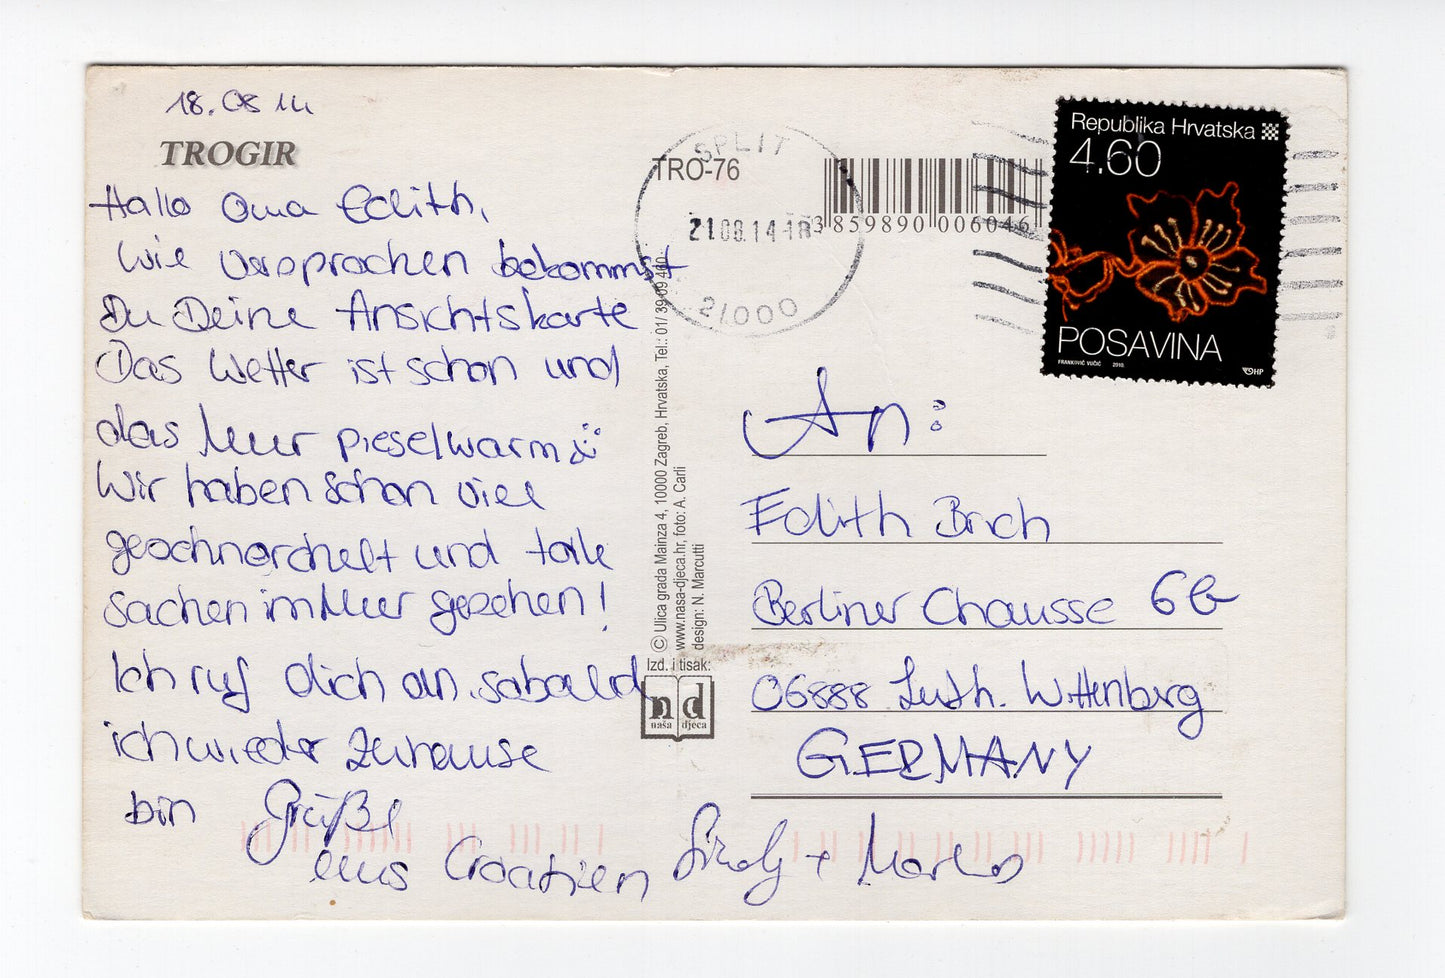 18.08.14
TROGIR
Hallo Oma Edith,
wie versprochen bekommst
Du Deine Ansichtskarte
Das Wetter ist schon und
das Meer pieselwarm
Wir haben schon viel
geschnorchelt und tolle
sachen im Meer gesehen!
Ich ruf dich an, sobald
ich wieder zuhause
bin
Grüße
aus Croatien
+ Marko
TRO-76
SPLIT
21.08.14-18
21000
3 859890 006046
Republika Hrvatska
4.60
POSAVINA
FRANKOVIĆ VUČIĆ 2010.
HP
© Ulica grada Mainza 4, 10000 Zagreb, Hrvatska, Tel.: 01/ 39 09 400
www.nasa-djeca.hr, foto: A. Carli
design: N. Marcutti
Izd. i tisak:
n d
naša djeca
An:
Edith Brich
Berliner Chausse 6B
06888 Luth. Wittenberg
GERMANY